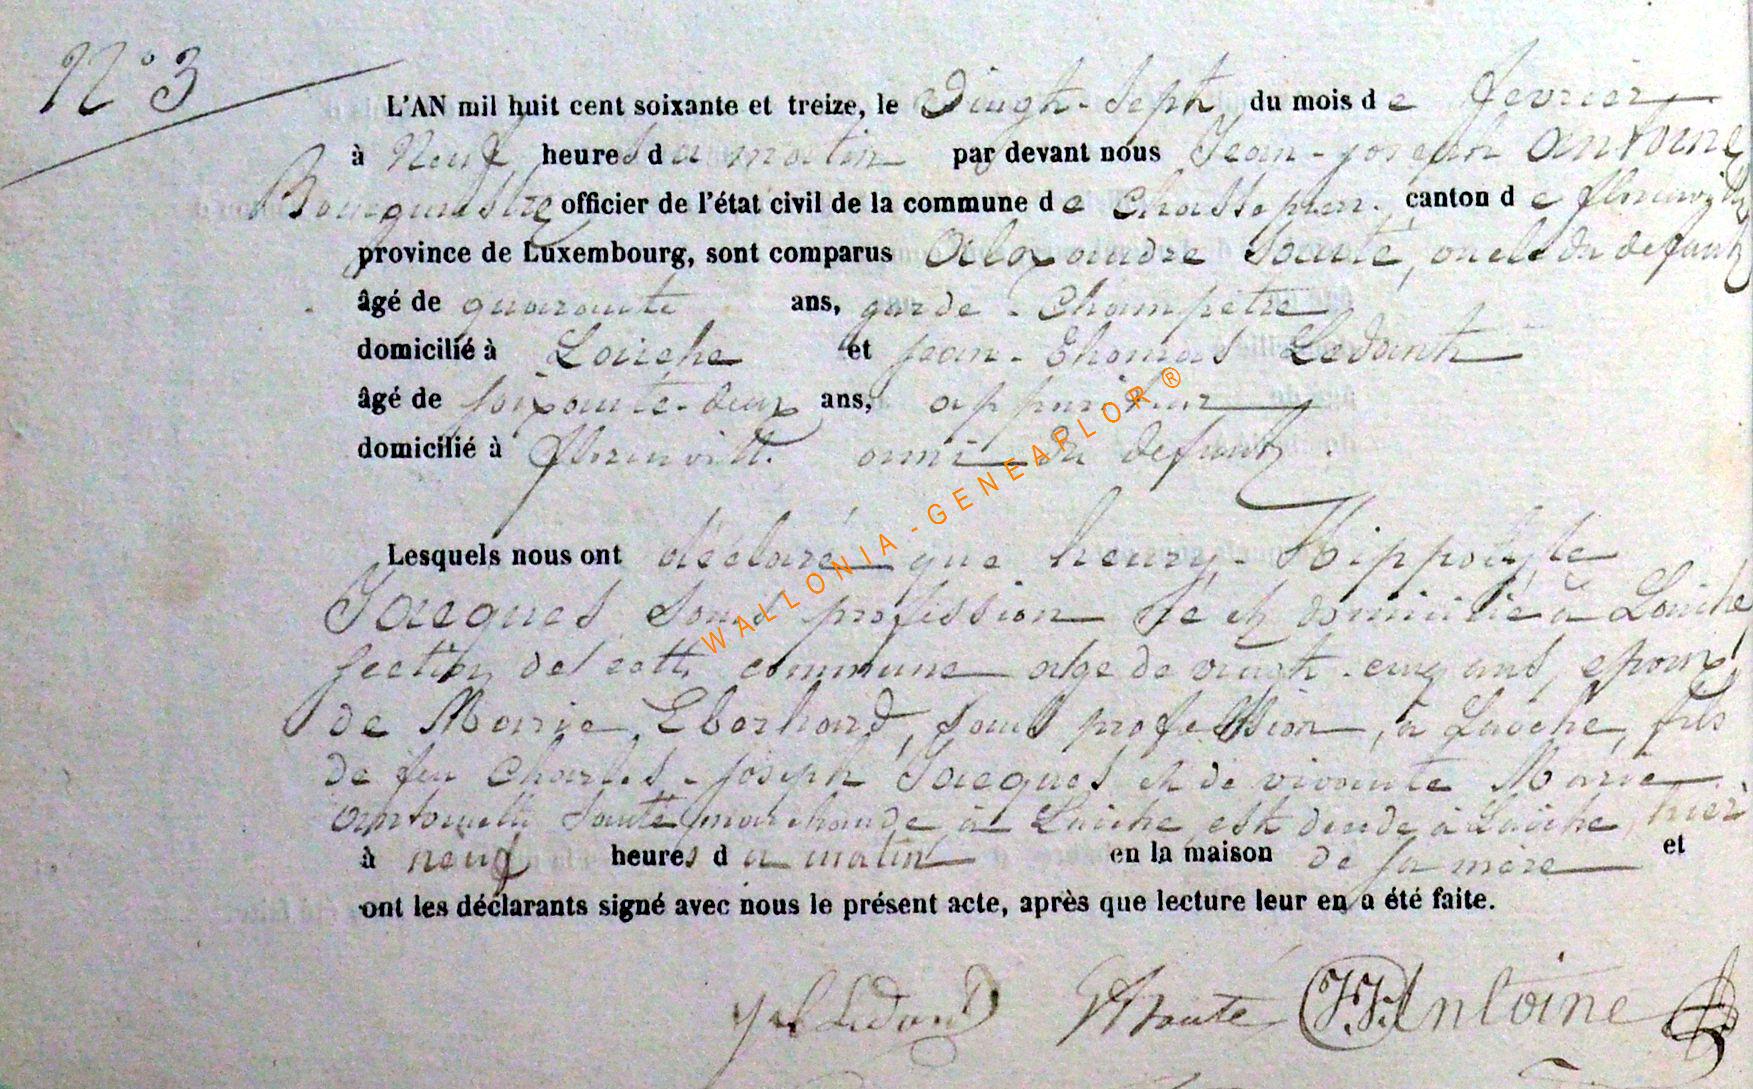 N° 3
L'AN mil huit cent soixante et treize, le Vingt-Sept du mois de fevrier
à Neuf heures du matin par devant nous Jean-joseph antoine
Bourguestre officier de l'état civil de la commune de Chassepierre canton de florenville
province de Luxembourg, sont comparus Alexandre Santé, oncle du defunt
âgé de quarante ans, garde-Champetre
domicilié à Laiche et jean-Thomas Ledant
âgé de soixante-deux ans, appariteur
domicilié à florenville ami du defunt
Lesquels nous ont déclaré que henry-Hippolyte
Jacques sans profession né et domicilié à Laiche
section de cette commune age de vingt-cinq ans, epoux
de Marie Eberhard, sans profession, à Laiche, fils
de feu Charles-joseph Jacques et de vivante Marie
antoinette Santé marchande à Laiche, est décédé à Laiche, hier
à neuf heures du matin en la maison de sa mère et
ont les déclarants signé avec nous le présent acte, après que lecture leur en a été faite.
Ledant Santé J.J. Antoine
WALLONIA - GENEAFLOR ®